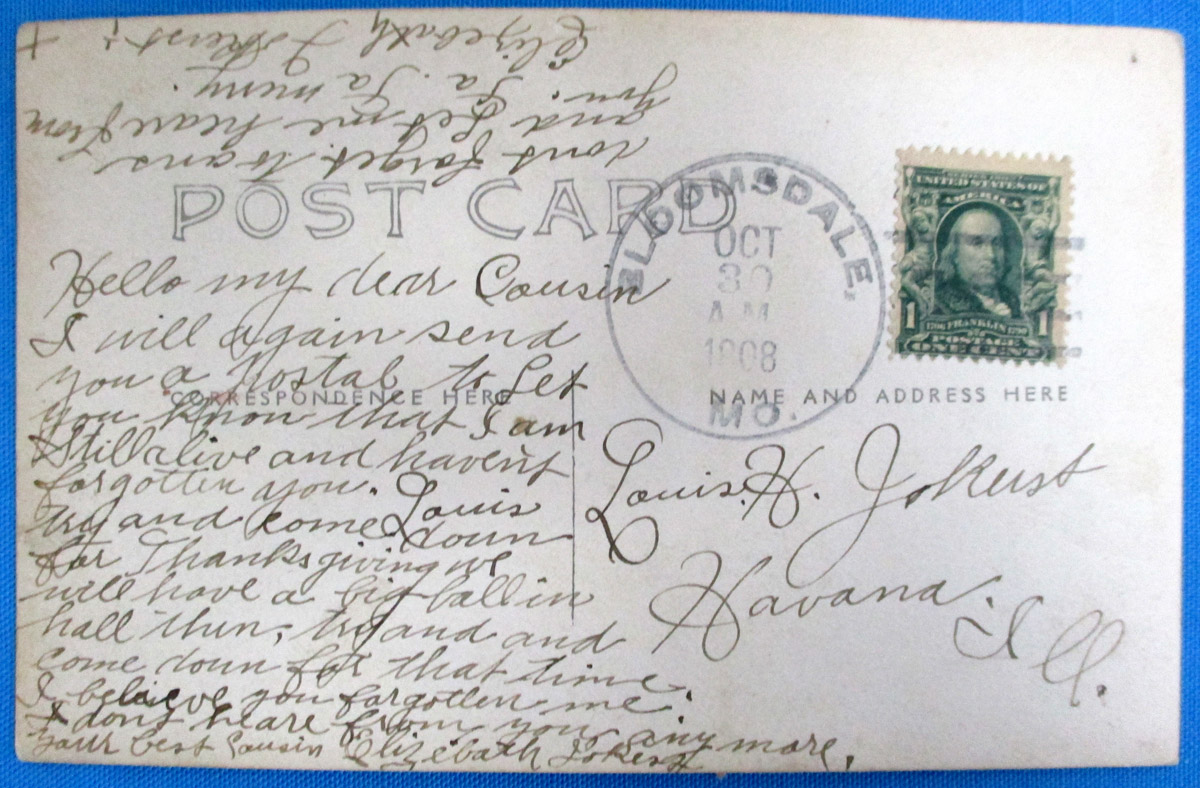 POST CARD
Hello my dear Cousin
I will again send
you a Postal to Let
CORRESPONDENCE HERE
you know that I am
Still alive and havent
forgotten you. Louis
try and come doun
for Thanksgiving we
will have a big ball in
hall then, try and and
come doun for that time.
I believe you forgotten me.
I dont heare from you any more.
your best Cousin Elizebath Jokerst
dont forget to ans
and Let me heare from
you. Ta Ta
Elizebath Jokerst
BLOOMSDALE.
OCT
30
A.M.
1908
MO.
UNITED STATES OF
AMERICA
1706 FRANKLIN 1790
1 1
POSTAGE
ONE CENT
NAME AND ADDRESS HERE
Louis. H. Jokerst
Havana.
Ill.